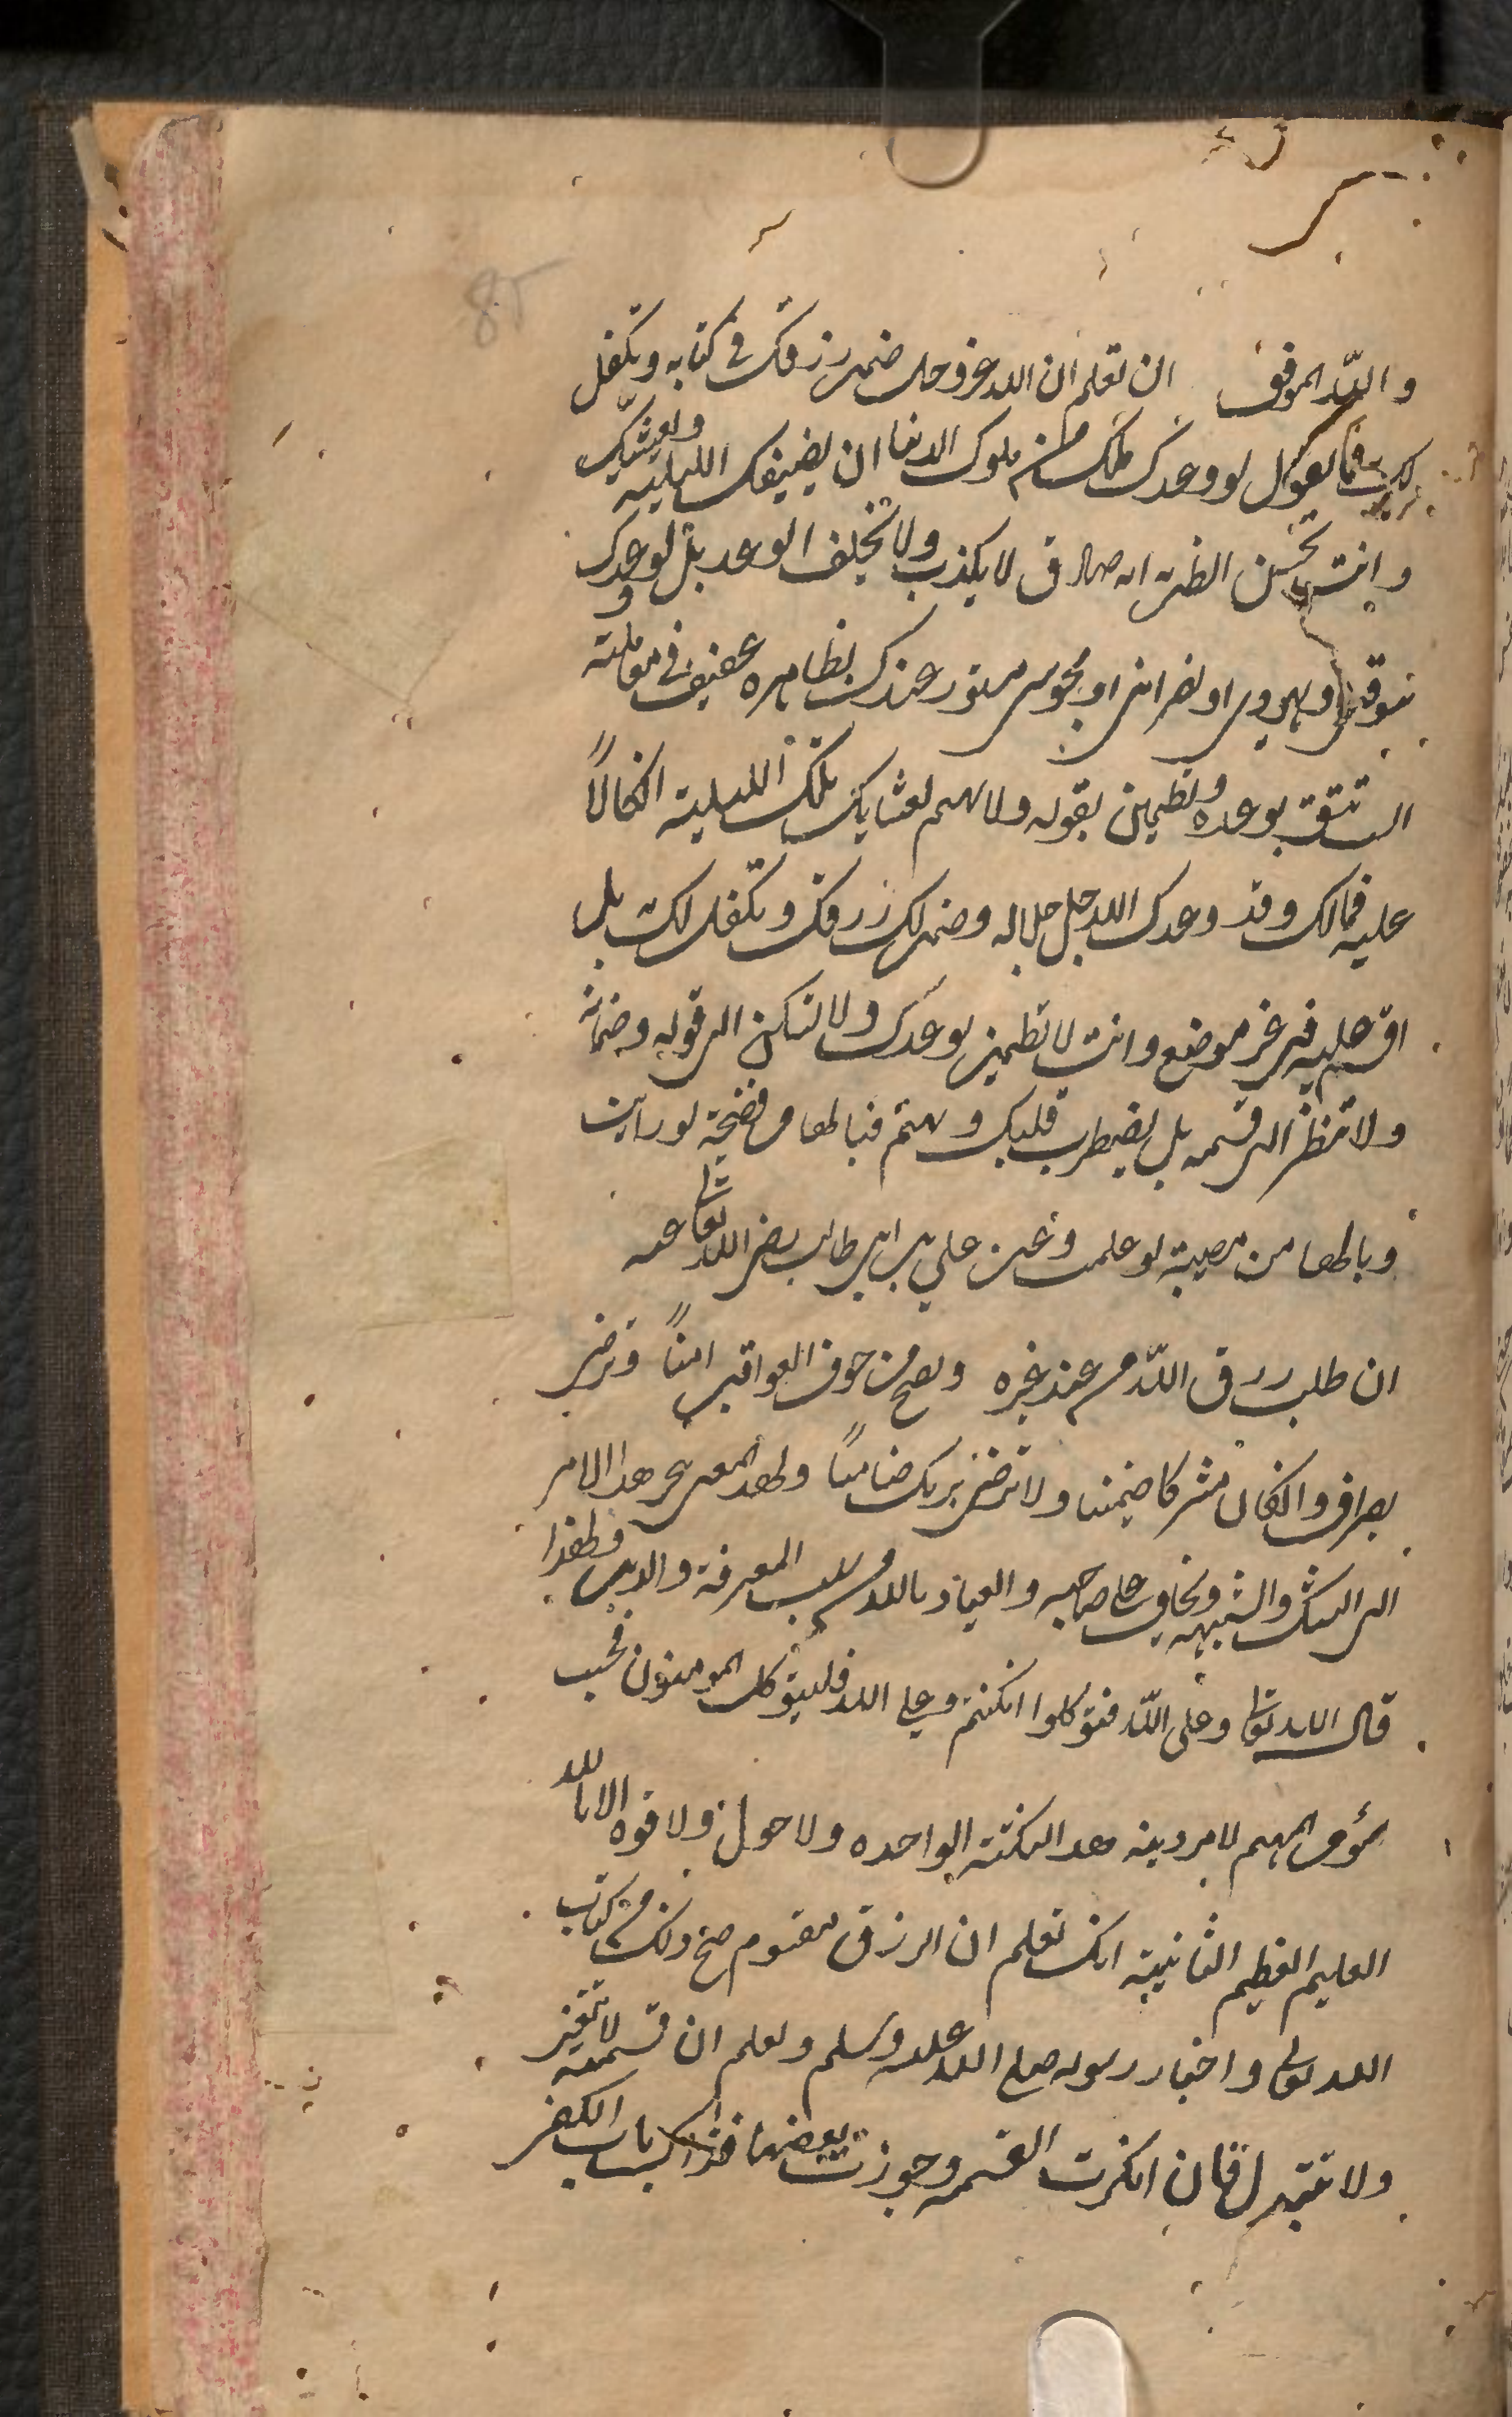 85
والله الموفق ان تعلم ان الله عز وجل ضمن رزقك في كتابه وتكفل
لك فما تقول لو وعدك ملك من ملوك الدنيا ان يضيفك الليلة ويعشيك
وانت تحسن الظن انه صادق لا يكذب ولا يخلف الوعد بل لو وعدك
سوقي او يهودي او نصراني او مجوسي مستور عندك بظاهره عفيف في معاملته
الست تثق بوعده وتطمين بقوله ولا تهتم لعشايك تلك الليلة اتكالا
عليه فمالك وقد وعدك الله جل جلاله وضمن لك رزقك وتكفل لك به بل
اقسم عليه في غير موضع وانت لا تطمين بوعدك ولا تسكن الى قوله وضمانه
ولا تنظر الى قسمه بل يضطرب قلبك وتهتم فيالها من فضيحة لو رايت
ويالها من مصيبة لو علمت وعن علي بن ابي طالب رضي الله تعالى عنه
ان طلب رزق الله من عند غيره وتصبح من خوف العواقب امنا وترضى
بصراف وان كان مشركا ضمينا ولا ترضى بربك ضامنا ولهذا المعنى يجر هذا الامر
الى الشك والشبهة ويخاف على صاحبه والعياذ بالله سلب المعرفة والدين ولهذا
قال الله تعالى وعلى الله فتوكلوا ان كنتم وعلى الله فليتوكل المومنون فحسب
مؤمن المهتم لامر دينه هذه النكتة الواحده ولا حول ولا قوه الا بالله
العليم العظيم الثانية انك تعلم ان الرزق مقسوم صح ذلك في كتاب
الله تعالى واخبار رسوله صلى الله عليه وسلم وتعلم ان قسمته لا تتغير
ولا تتبدل فان انكرت القسمة وجوزت بعضها فذاك باب الكفر